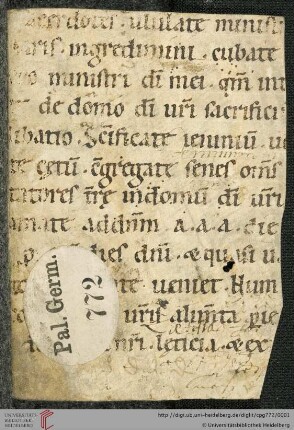 acerdotes . ululate ministri
aris . ingredimini . cubate
ministri di mei . qm int
de domo di uri sacrifici
ibatio . Scificate ieiuniu . uo
te cetu . cgregate senes oms
tatores tre in domu di uri
amate ad dnm a . a . a . die
dies dni . & quasi u
te ueniet . Num
uris alimta pie
nri . leticia & ex
Pal. Germ.
772
UNIVERSITÄTS-
BIBLIOTHEK
HEIDELBERG
http://digi.ub.uni-heidelberg.de/diglit/cpg772/0001
© Universitätsbibliothek Heidelberg